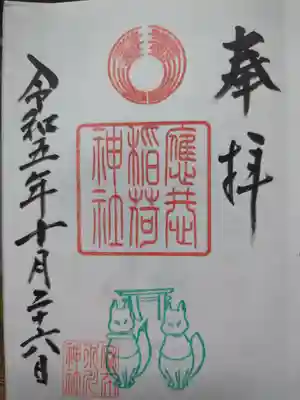 奉拝
應
稲荷
神社
令和五年十月二十六日
神社